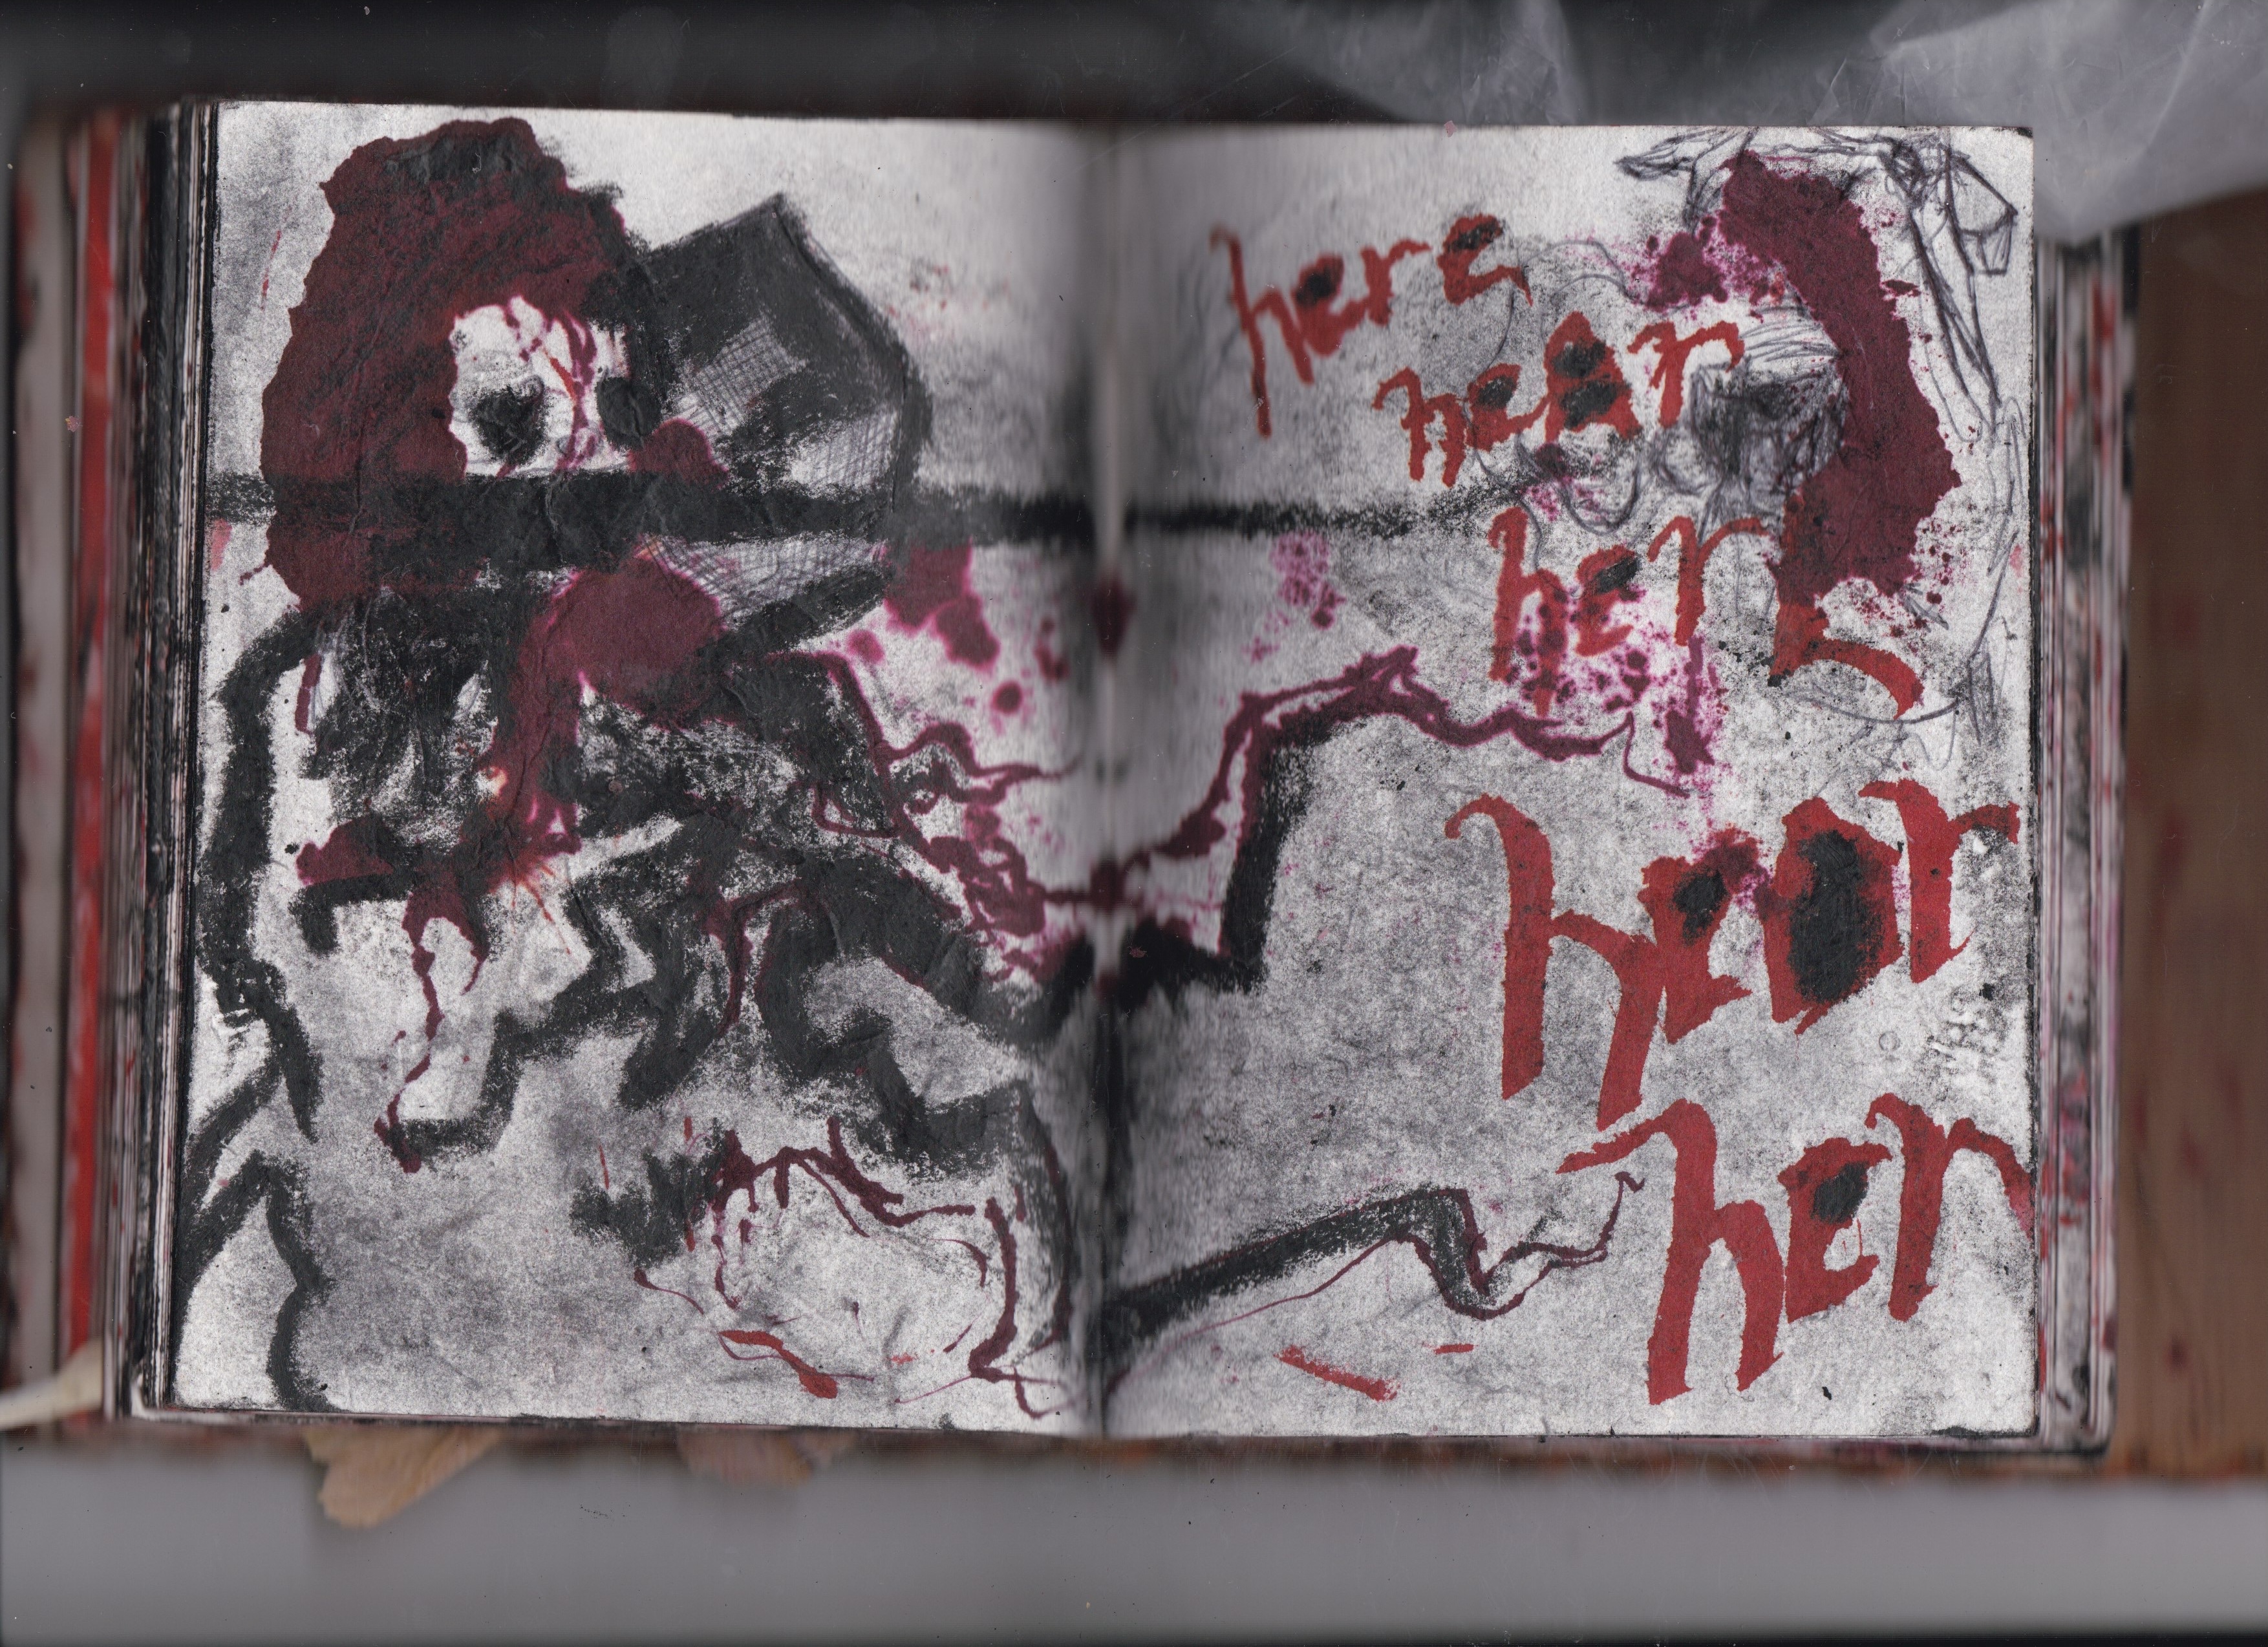 here
hear
her
hear
her